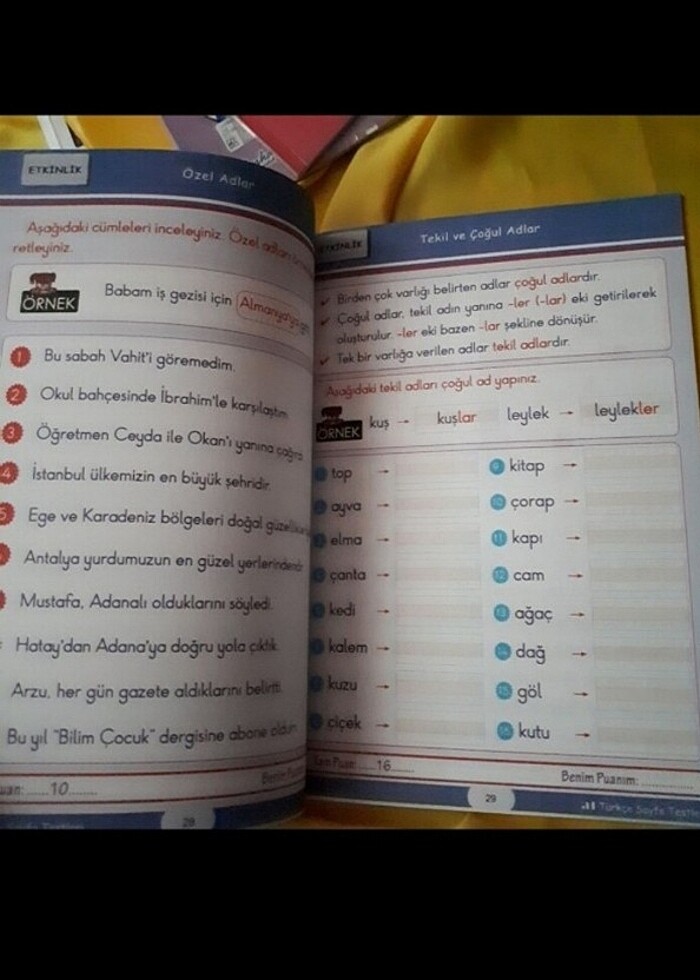 ETKİNLİK
Özel Adlar
Aşağıdaki cümleleri inceleyiniz. Özel adları
retleyiniz.
ÖRNEK
Babam iş gezisi için Almanya'ya
1 Bu sabah Vahit'i göremedim.
2 Okul bahçesinde İbrahim'le karşılaştım.
3 Öğretmen Ceyda ile Okan'ı yanına çağırdı
4 İstanbul ülkemizin en büyük şehridir.
5 Ege ve Karadeniz bölgeleri doğal
Antalya yurdumuzun en güzel yerlerindendir
Mustafa, Adanalı olduklarını söyledi.
Hatay'dan Adana'ya doğru yola çıktık.
Arzu, her gün gazete aldıklarını belirtti.
Bu yıl "Bilim Çocuk" dergisine abone oldum
uan: .....10........
Benim
28
ETKİNLİK
Tekil ve Çoğul Adlar
✓ Birden çok varlığı belirten adlar çoğul adlardır.
✓ Çoğul adlar, tekil adın yanına -ler (-lar) eki getirilerek
oluşturulur. -ler eki bazen -lar şekline dönüşür.
✓ Tek bir varlığa verilen adlar tekil adlardır.
Aşağıdaki tekil adları çoğul ad yapınız.
ÖRNEK
kuş → kuşlar leylek → leylekler
top →
ayva →
elma →
çanta →
kedi →
kalem →
kuzu →
çiçek →
9 kitap →
10 çorap →
11 kapı →
12 cam →
13 ağaç →
14 dağ →
15 göl →
16 kutu →
Tam Puan: .....16.......
Benim Puanım: ..............
29
Türkçe Sayfa Testleri